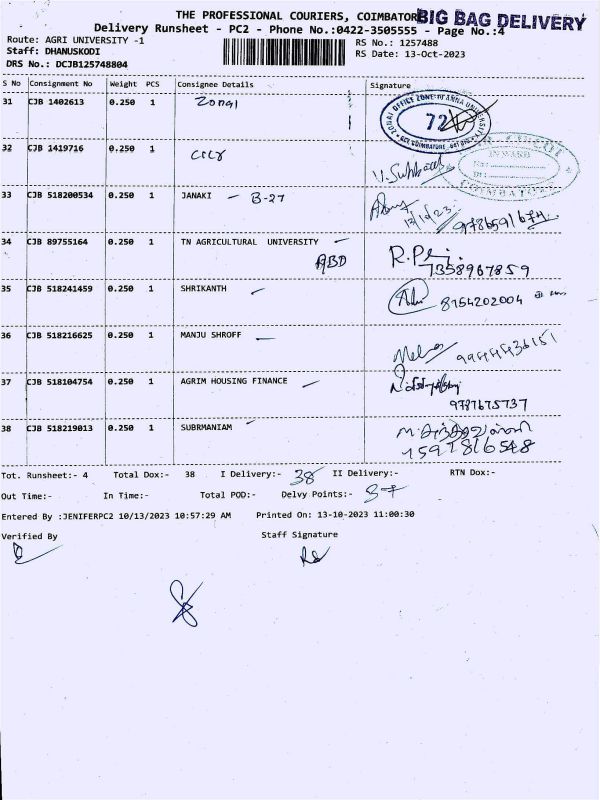 THE PROFESSIONAL COURIERS, COIMBATOR BIG BAG DELIVERY
Delivery Runsheet - PC2 - Phone No.:0422-3505555 - Page No.:4
Route: AGRI UNIVERSITY -1 RS No.: 1257488
Staff: DHANUSKODI RS Date: 13-Oct-2023
DRS No.: DCJB125748804
S No Consignment No Weight PCS Consignee Details Signature
31 CJB 1402613 0.250 1 Zonal 72
32 CJB 1419716 0.250 1 INWARD
COIMBATORE
33 CJB 518200534 0.250 1 JANAKI - B-27 13/10/23
34 CJB 89755164 0.250 1 TN AGRICULTURAL UNIVERSITY
ABD 7358967859
35 CJB 518241459 0.250 1 SHRIKANTH 8754202004
36 CJB 518216625 0.250 1 MANJU SHROFF
37 CJB 518104754 0.250 1 AGRIM HOUSING FINANCE
9787675737
38 CJB 518219013 0.250 1 SUBRMANIAM
Tot. Runsheet:- 4 Total Dox:- 38 I Delivery:- 38 II Delivery:- RTN Dox:-
Out Time:- In Time:- Total POD:- Delvy Points:-
Entered By :JENIFERPC2 10/13/2023 10:57:29 AM Printed On: 13-10-2023 11:00:30
Verified By Staff Signature